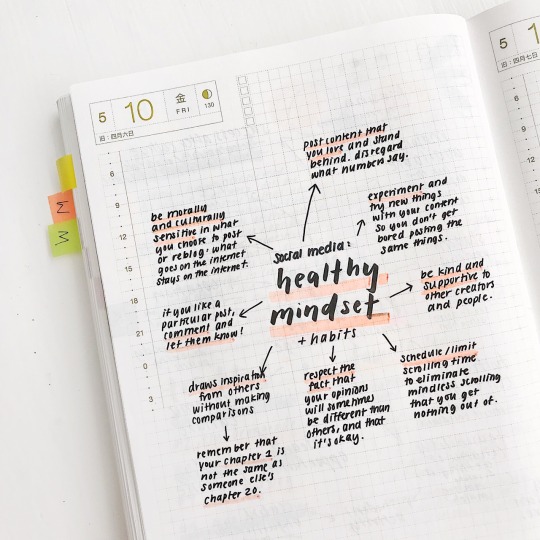 5
10
金
FRI
130
旧:四月六日
5
旧:四月七日
6
9
12
15
18
21
0
3
6
9
12
15
M
W
post content that
you love and stand
behind. disregard
what numbers say.
experiment and
try new things
with your content
so you don't get
bored posting the
same things.
be morally
and culturally
sensitive in what
you choose to post
or reblog: what
goes on the internet
stays on the internet.
social media:
healthy
mindset
+ habits
be kind and
supportive to
other creators
and people.
if you like a
particular post,
comment and
let them know!
draws inspiration
from others
without making
comparisons
respect the
fact that
your opinions
will sometimes
be different than
others, and that
it's okay.
schedule/limit
scrolling time
to eliminate
mindless scrolling
that you get
nothing out of.
remember that
your chapter 1 is
not the same as
someone else's
chapter 20.